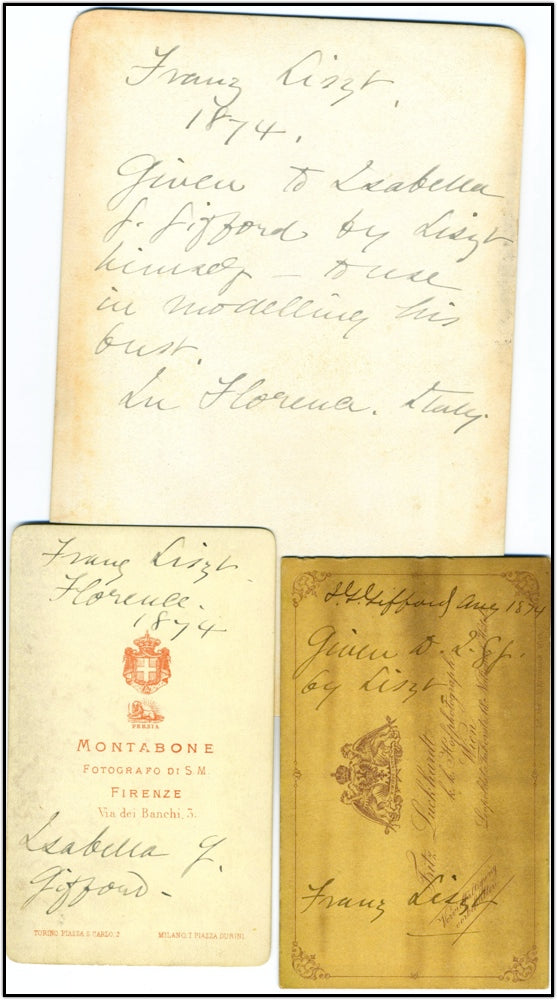 Franz Liszt.
1874.
Given to Isabella
G. Gifford by Liszt
himself – to use
in modelling his
bust.
In Florence. Italy.
Franz Liszt.
Florence.
1874
PERSIA
MONTABONE
FOTOGRAFO DI S.M.
FIRENZE
Via dei Banchi, 3.
Isabella G.
Gifford –
TORINO PIAZZA S. CARLO, 2 MILANO, 7 PIAZZA DURINI
I. G. Gifford Aug 1874
Given to I. G. G.
by Liszt
Fritz Luckhardt
k.k. Hofphotograph
Wien
Franz Liszt